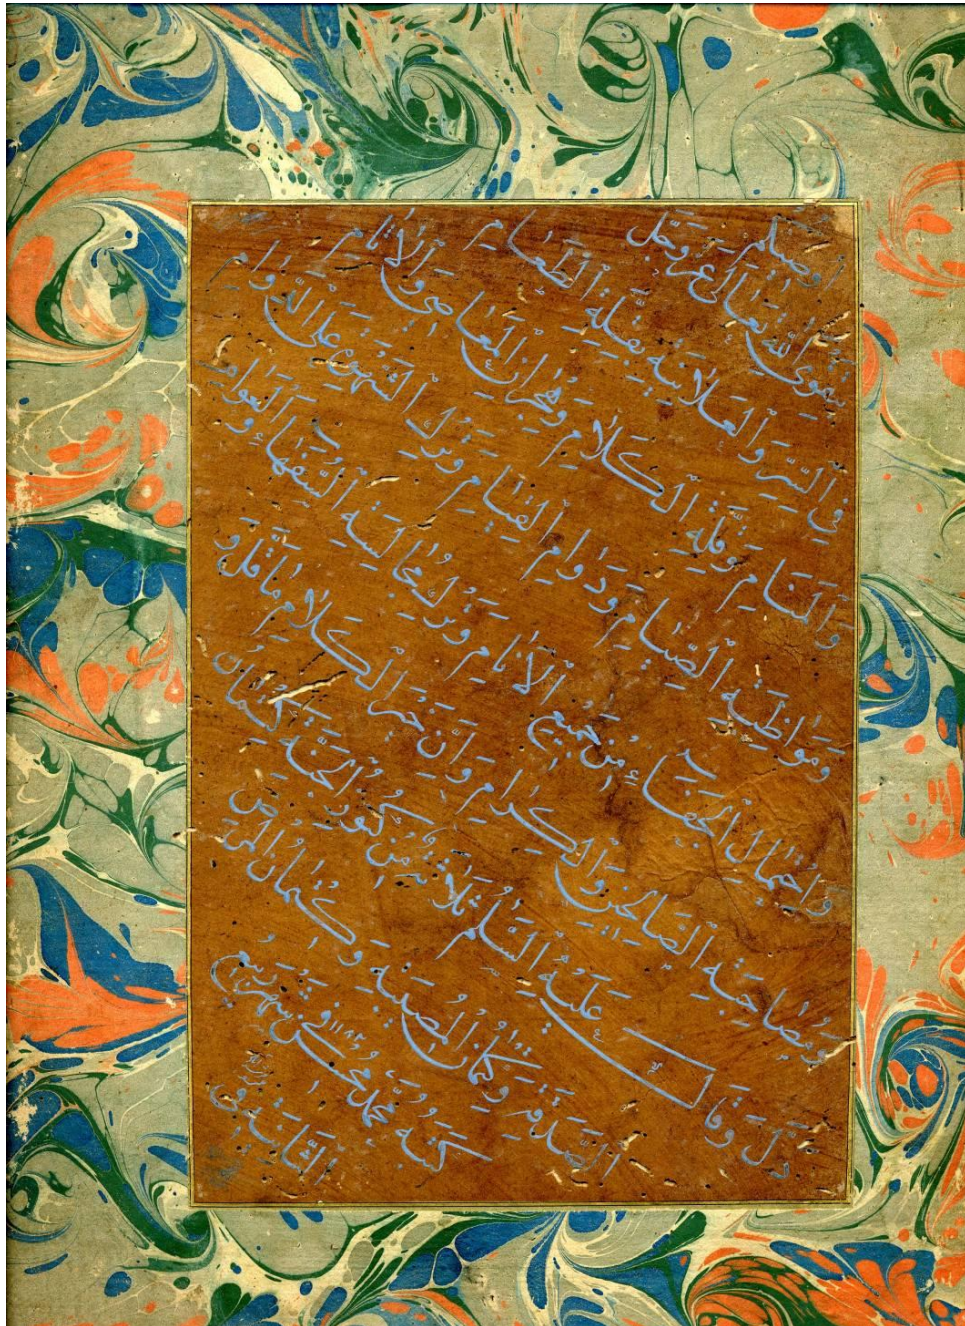 اوصيكم
بتقوى الله تعالى عز وجل
في السر والعلانية بقلة الطعام
والمنام وقلة الكلام وهجران المعاصي والاثام
ومواظبة الصيام ودوام القيام وترك الشهوة على الدوام
واحتمال الجفاء من جميع الانام وترك مجالسة السفهاء والعوام
ومصاحبة الصالحين والكرام وان خير الكلام ما قل و
دل وقال عليه السلم ثلاثة من كنوز الجنة كتمان
الصدقة وكتمان المصيبة وكتمان المرض
كتبه محمد محسن في شهر ربيع
١١٨٢
الثانية في